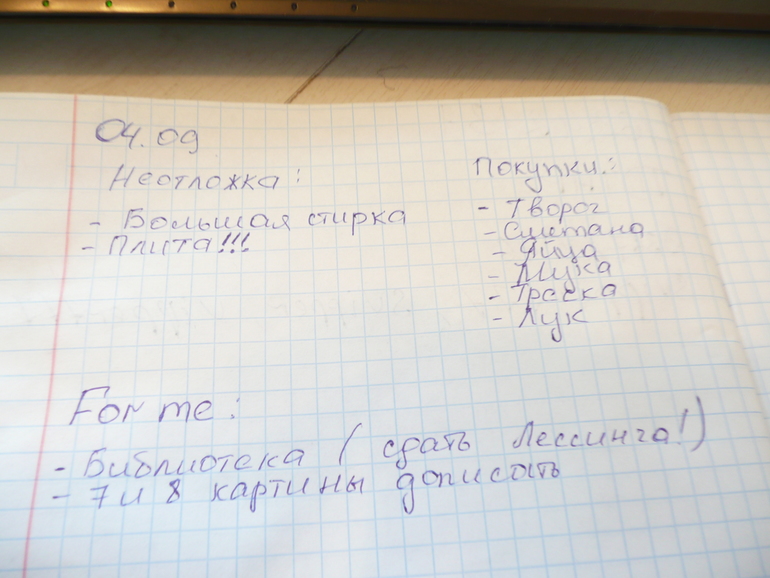 04.09
Неотложка:
- Большая стирка
- Плита!!!
Покупки:
- Творог
- Сметана
- Яйца
- Мука
- Треска
- Лук
For me:
- Библиотека (сдать Лессинга!)
- 7 и 8 картины дописать